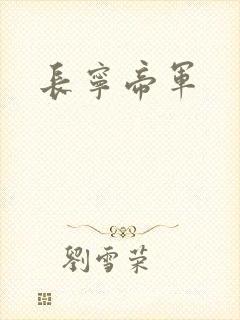 長寧帝軍
劉雪荣